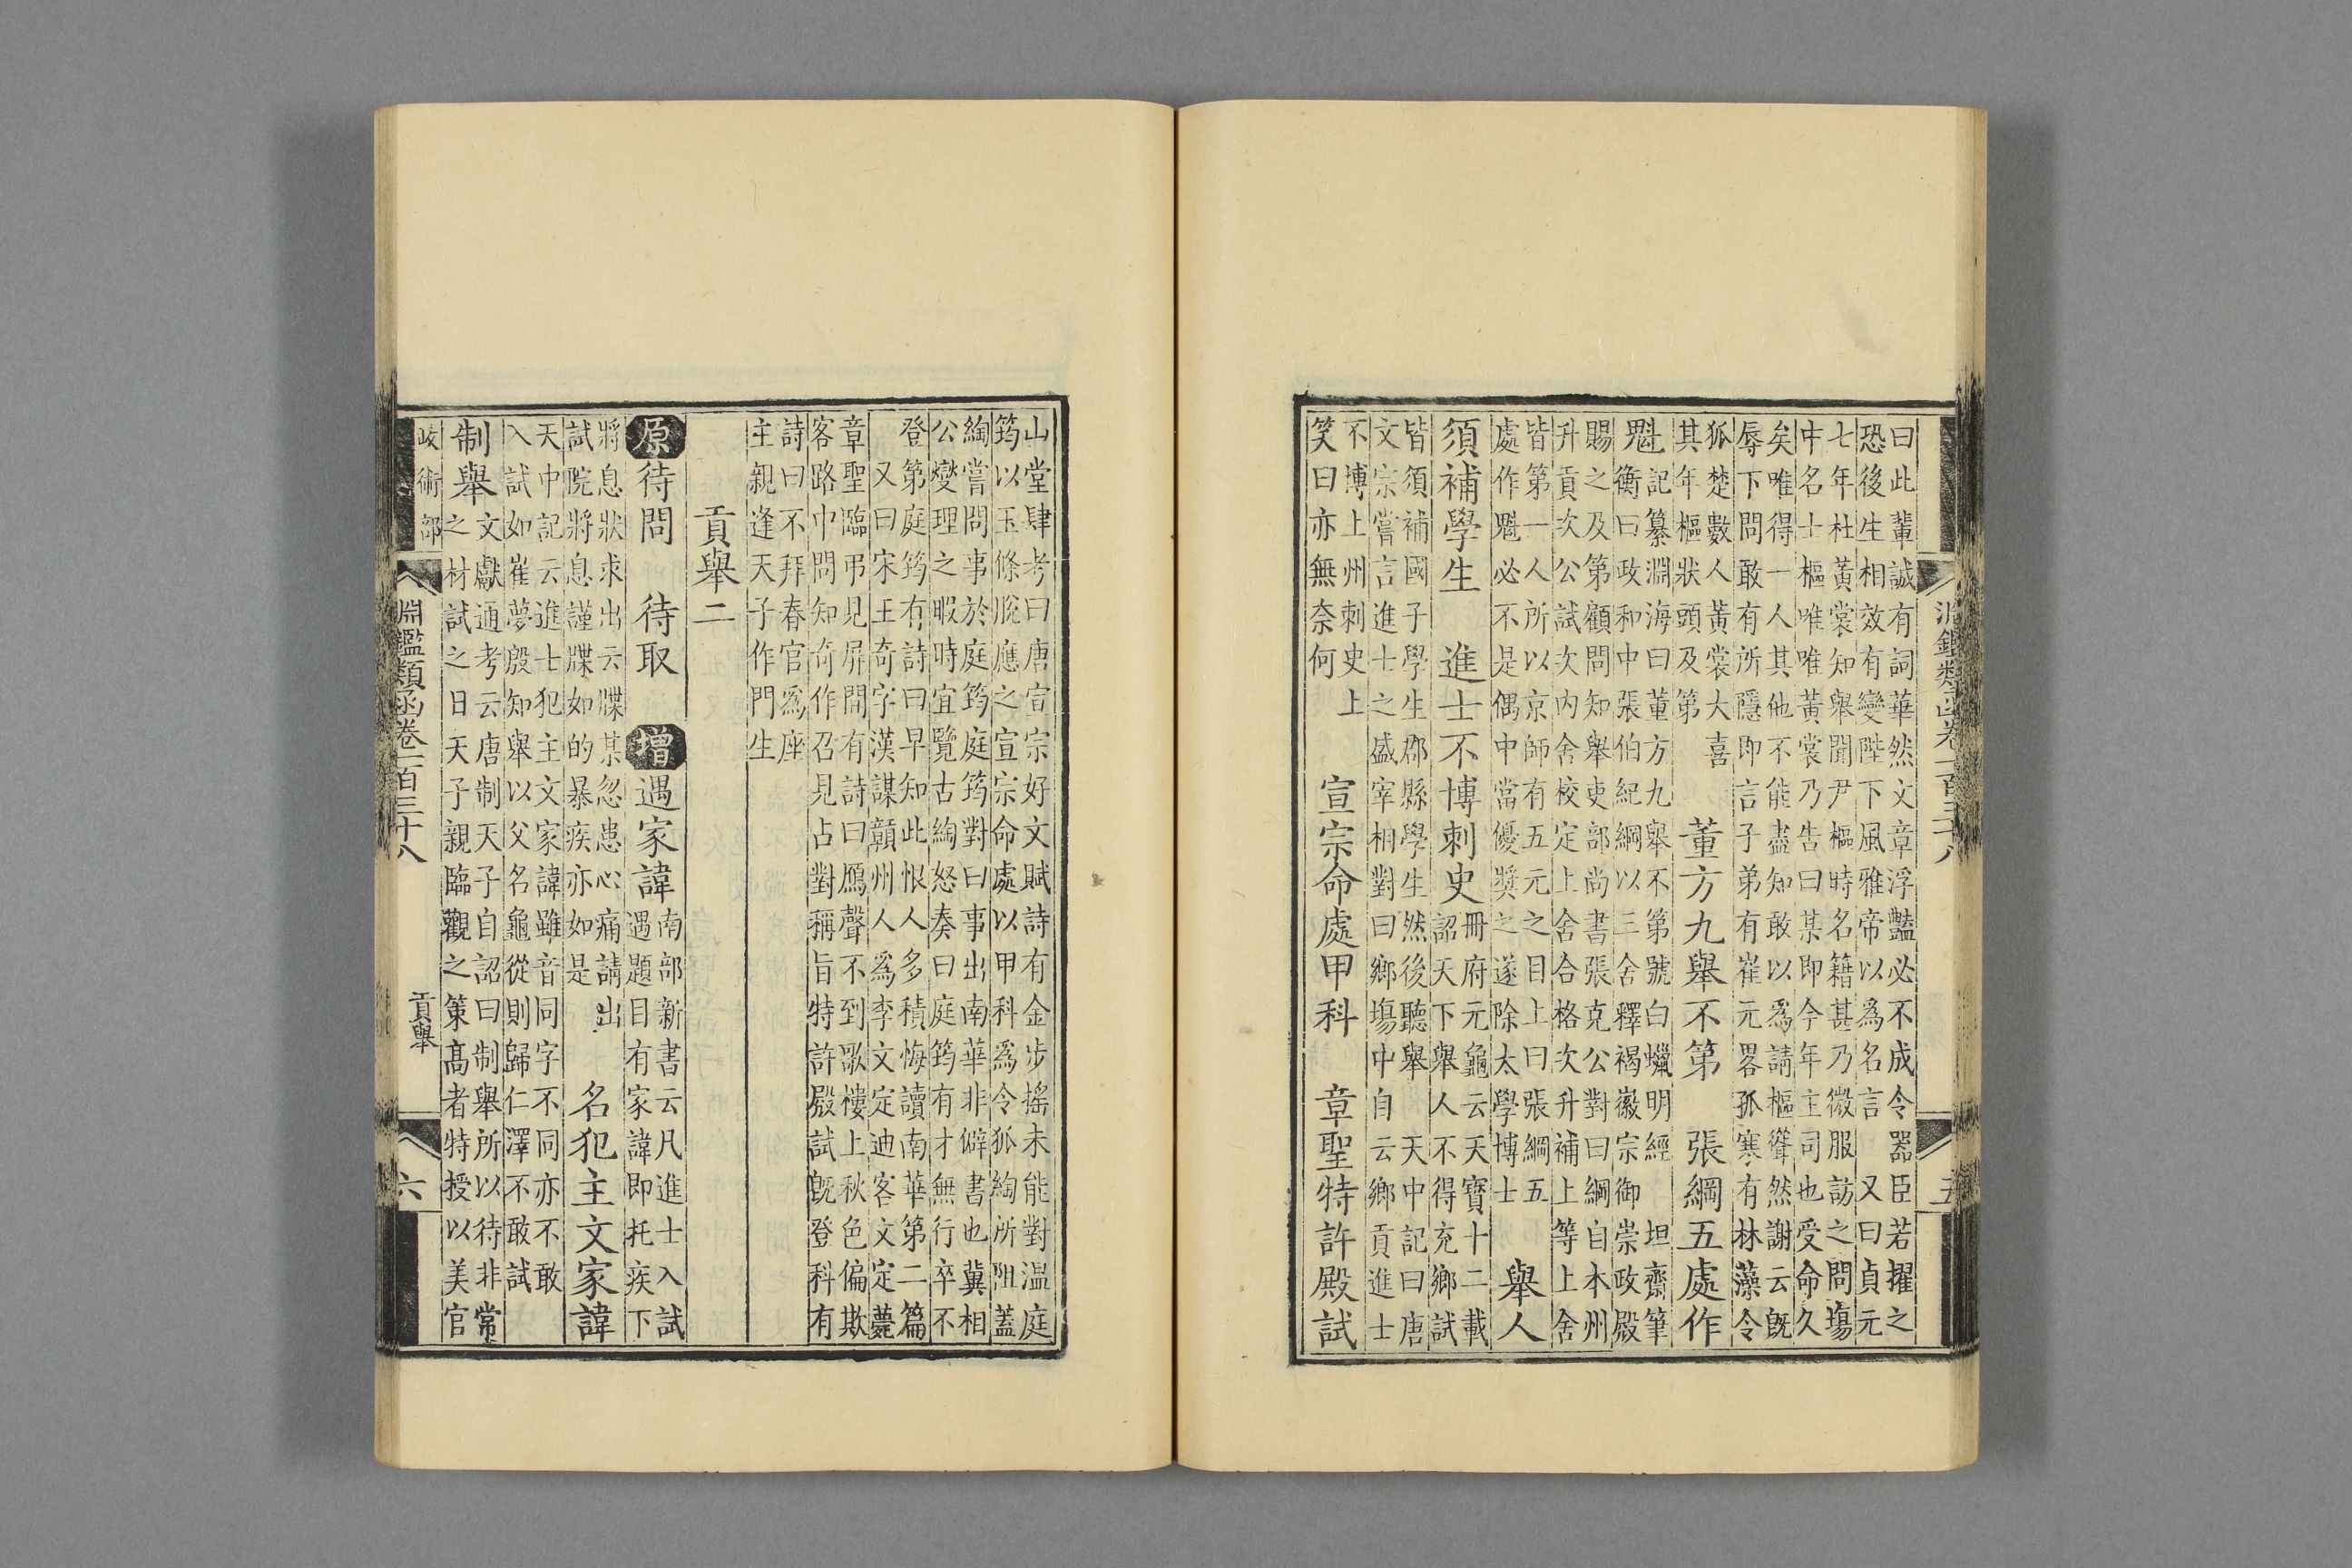 淵鑑類函卷一百三十八
五
曰此輩誠有詞華然文章浮豔必不成令器臣若擢之
恐後生相效有變陛下風雅帝以爲名言 又曰貞元
七年杜黃裳知舉聞尹樞時名籍甚乃微服訪之問場
中名士樞唯唯黃裳乃告曰某即今年主司也受命久
矣唯得一人其他不能盡知敢以爲請樞聳然謝云既
辱下問敢有所隱即言子弟有崔元畧孤寒有林藻令
狐楚數人黃裳大喜
其年樞狀頭及第
董方九舉不第 張綱五處作
魁
記纂淵海曰董方九舉不第號白蠟明經 坦齋筆
衡曰政和中張伯紀綱以三舍釋褐徽宗御崇政殿
賜之及第顧問知舉吏部尚書張克公對曰綱自本州
升貢次公試次内舍校定上舍合格次升補上等上舍
皆第一人所以京師有五元之目上曰張綱五
處作魁必不是偶中當優獎之遂除太學博士
舉人
須補學生 進士不博刺史
冊府元龜云天寶十二載
詔天下舉人不得充鄉試
皆須補國子學生郡縣學生然後聽舉 天中記曰唐
文宗嘗言進士之盛宰相對曰鄉塲中自云鄉貢進士
不博上州刺史上
笑曰亦無奈何
宣宗命處甲科 章聖特許殿試
山堂肆考曰唐宣宗好文賦詩有金步搖未能對温庭
筠以玉條脫應之宣宗命處以甲科爲令狐綯所阻蓋
綯嘗問事於庭筠庭筠對曰事出南華非僻書也冀相
公燮理之暇時宜覽古綯怒奏曰庭筠有才無行卒不
登第庭筠有詩曰早知此恨人多積悔讀南華第二篇
又曰宋王奇字漢謀贛州人爲李文定迪客文定薨
章聖臨弔見屏間有詩曰鴈聲不到歌樓上秋色偏欺
客路中問知奇作召見占對稱旨特許殿試既登科有
詩曰不拜春官爲座
主親逢天子作門生
貢舉二
原待問 待取 增遇家諱
南部新書云凡進士入試
遇題目有家諱即托疾下
將息狀求出云牒某忽患心痛請出
試院將息謹牒如的暴疾亦如是
名犯主文家諱
天中記云進士犯主文家諱雖音同字不同亦不敢
入試如崔夢殷知舉以父名龜從則歸仁澤不敢試
制舉
文獻通考云唐制天子自詔曰制舉所以待非常
之材試之日天子親臨觀之策高者特授以美官
政術部
淵鑑類函卷一百三十八
貢舉
六